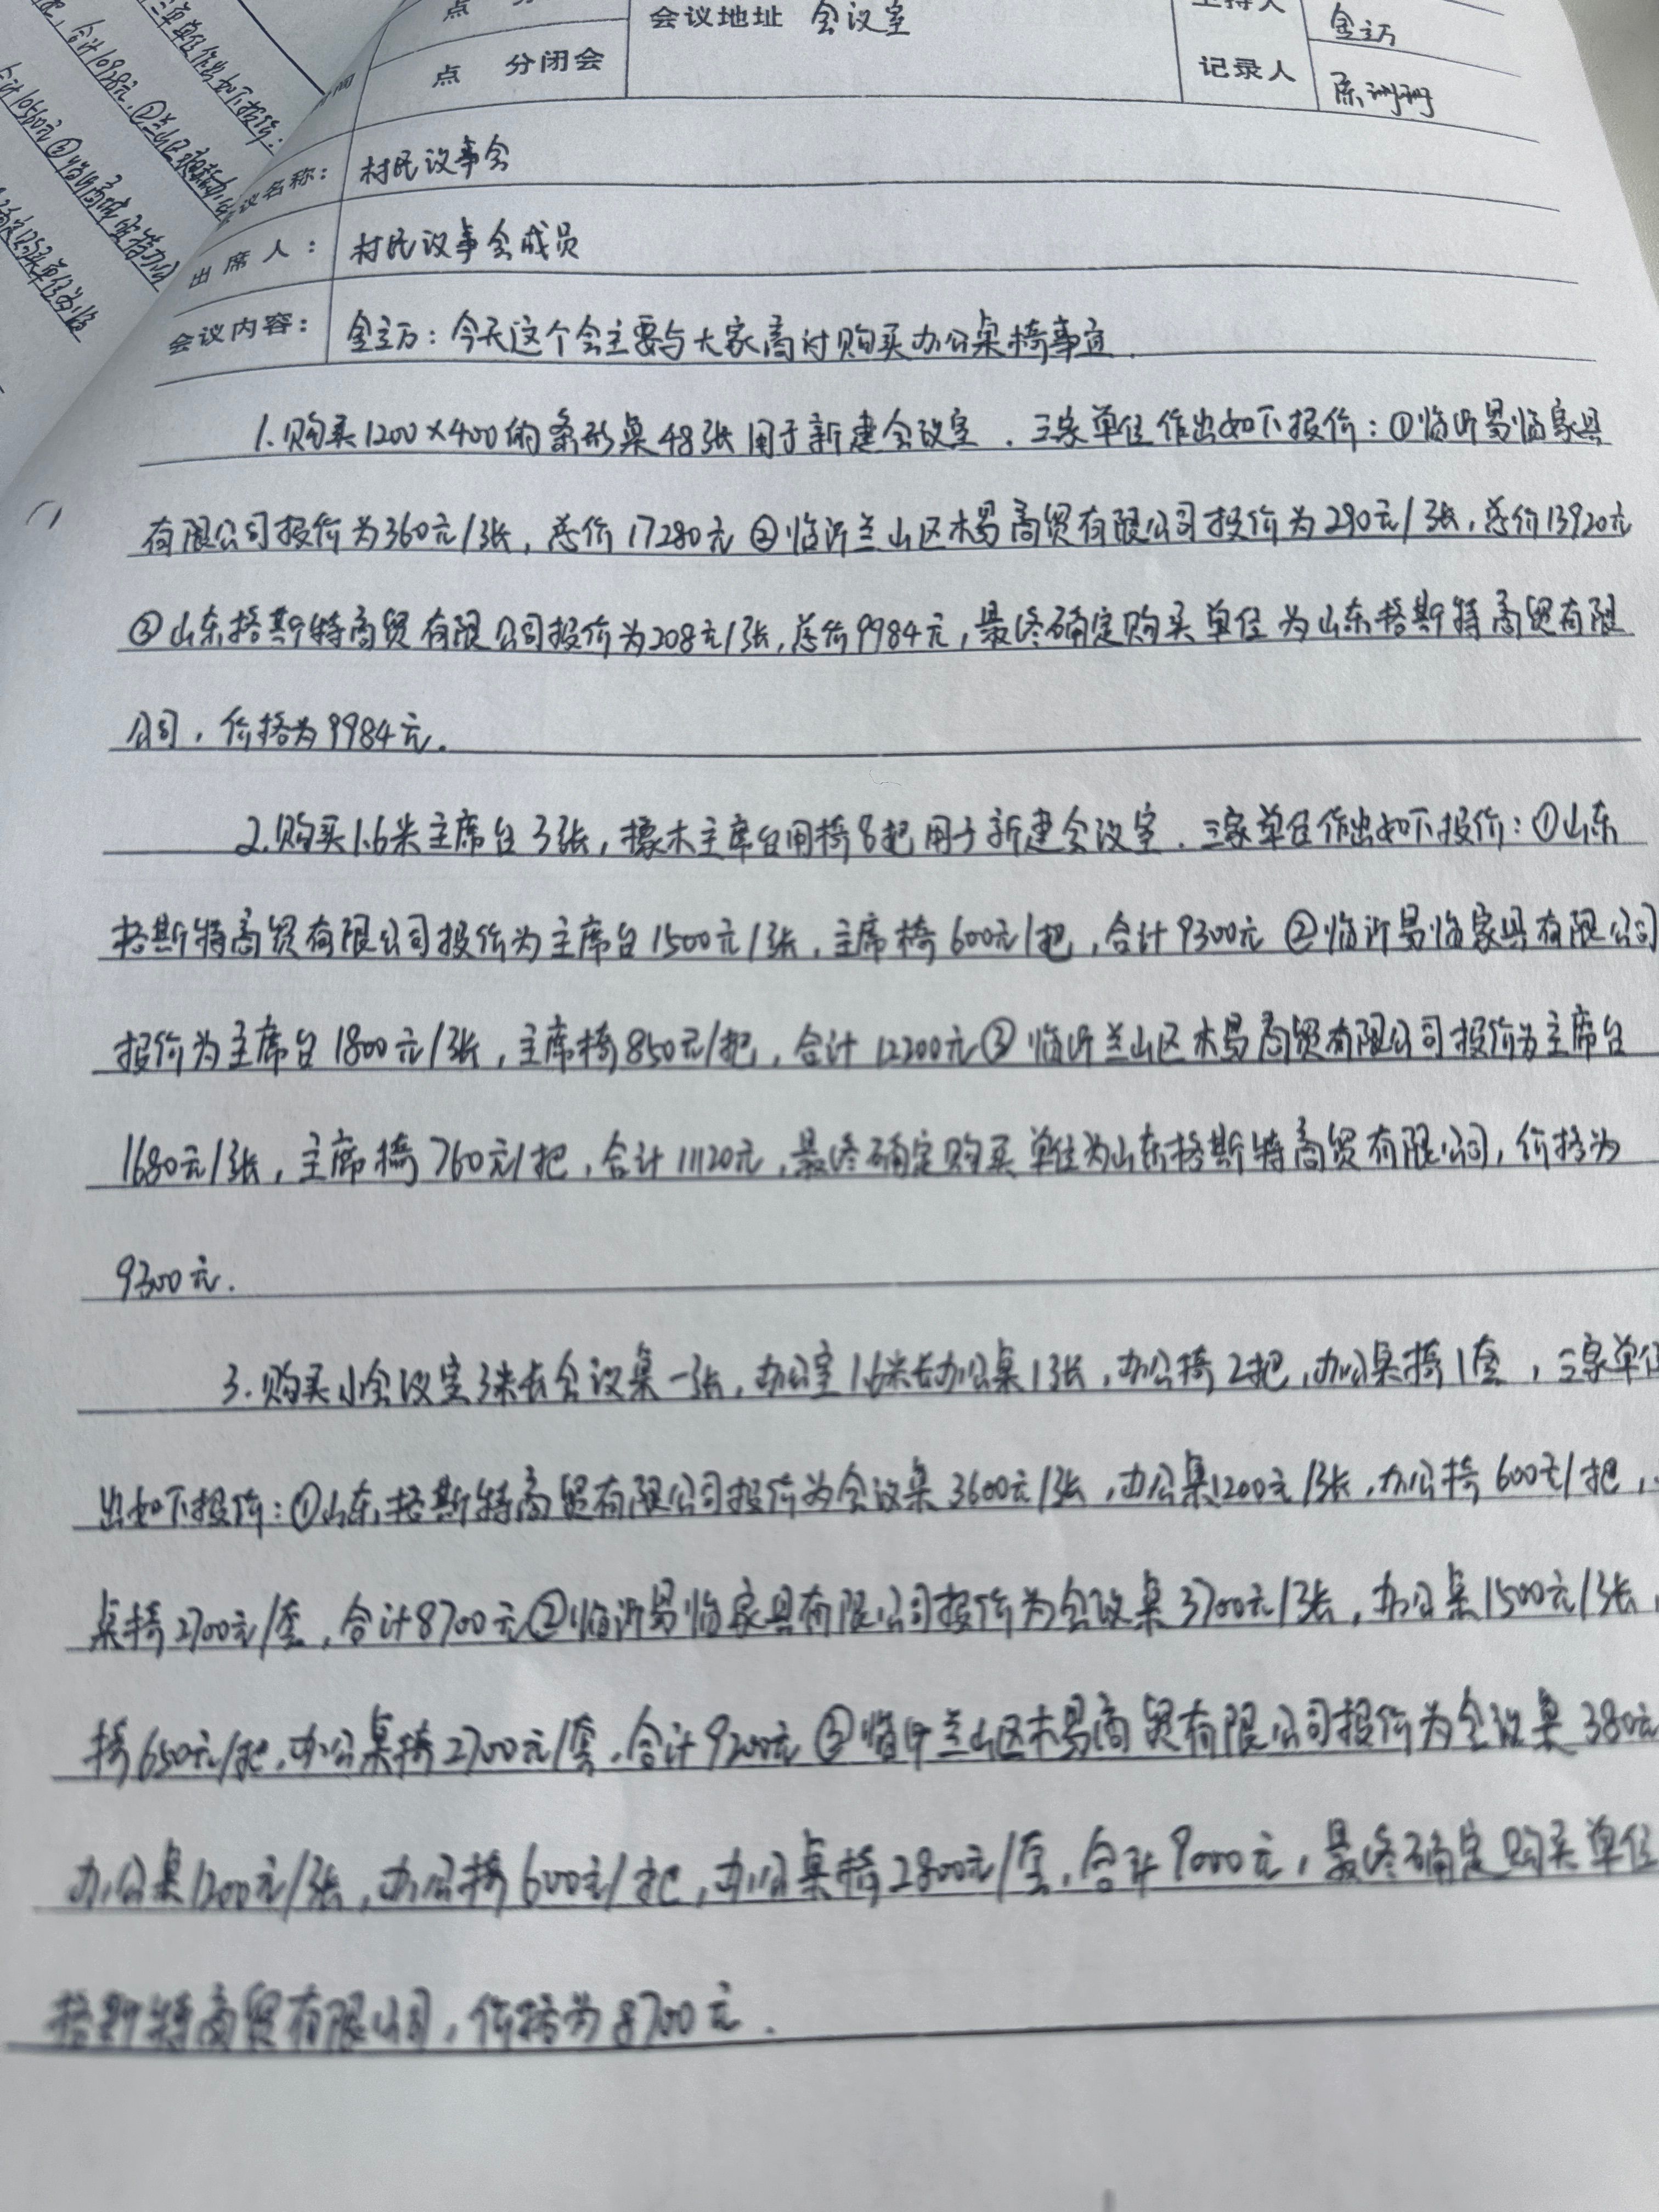 点 分
会议地址 会议室
主持人 金主万
点 分闭会
记录人
议名称： 村民议事会
出席人： 村民议事会成员
会议内容： 金主万：今天这个会主要与大家商讨购买办公桌椅事宜.
1.购买1200×400的条形桌48张用于新建会议室．三家单位作出如下报价：①临沂易临家具
有限公司报价为360元/张，总价17280元②临沂兰山区木易商贸有限公司报价为290元/张，总价13920元
③山东格斯特商贸有限公司报价为208元/张，总价9984元，最终确定购买单位为山东格斯特商贸有限
公司，价格为9984元.
2.购买1.6米主席台3张，橡木主席台用椅8把用于新建会议室．三家单位作出如下报价：①山东
格斯特商贸有限公司报价为主席台1500元/张，主席椅600元/把，合计9300元②临沂易临家具有限公司
报价为主席台1800元/张，主席椅850元/把，合计12200元③临沂兰山区木易商贸有限公司报价为主席台
1680元/张，主席椅760元/把，合计11120元，最终确定购买单位为山东格斯特商贸有限公司，价格为
9300元.
3.购买小会议室3米长会议桌一张，办公室1.6米长办公桌1张，办公椅2把，办公桌椅1套，三家单位
出如下报价：①山东格斯特商贸有限公司报价为会议桌3600元/张，办公桌1200元/张，办公椅600元/把，
桌椅2700元/套，合计8700元②临沂易临家具有限公司报价为会议桌3700元/张，办公桌1500元/张，
椅650元/把，办公桌椅2700元/套，合计9200元③临沂兰山区木易商贸有限公司报价为会议桌380元
办公桌1200元/张，办公椅600元/把，办公桌椅2800元/套，合计9000元，最终确定购买单位
格斯特商贸有限公司，价格为8700元.